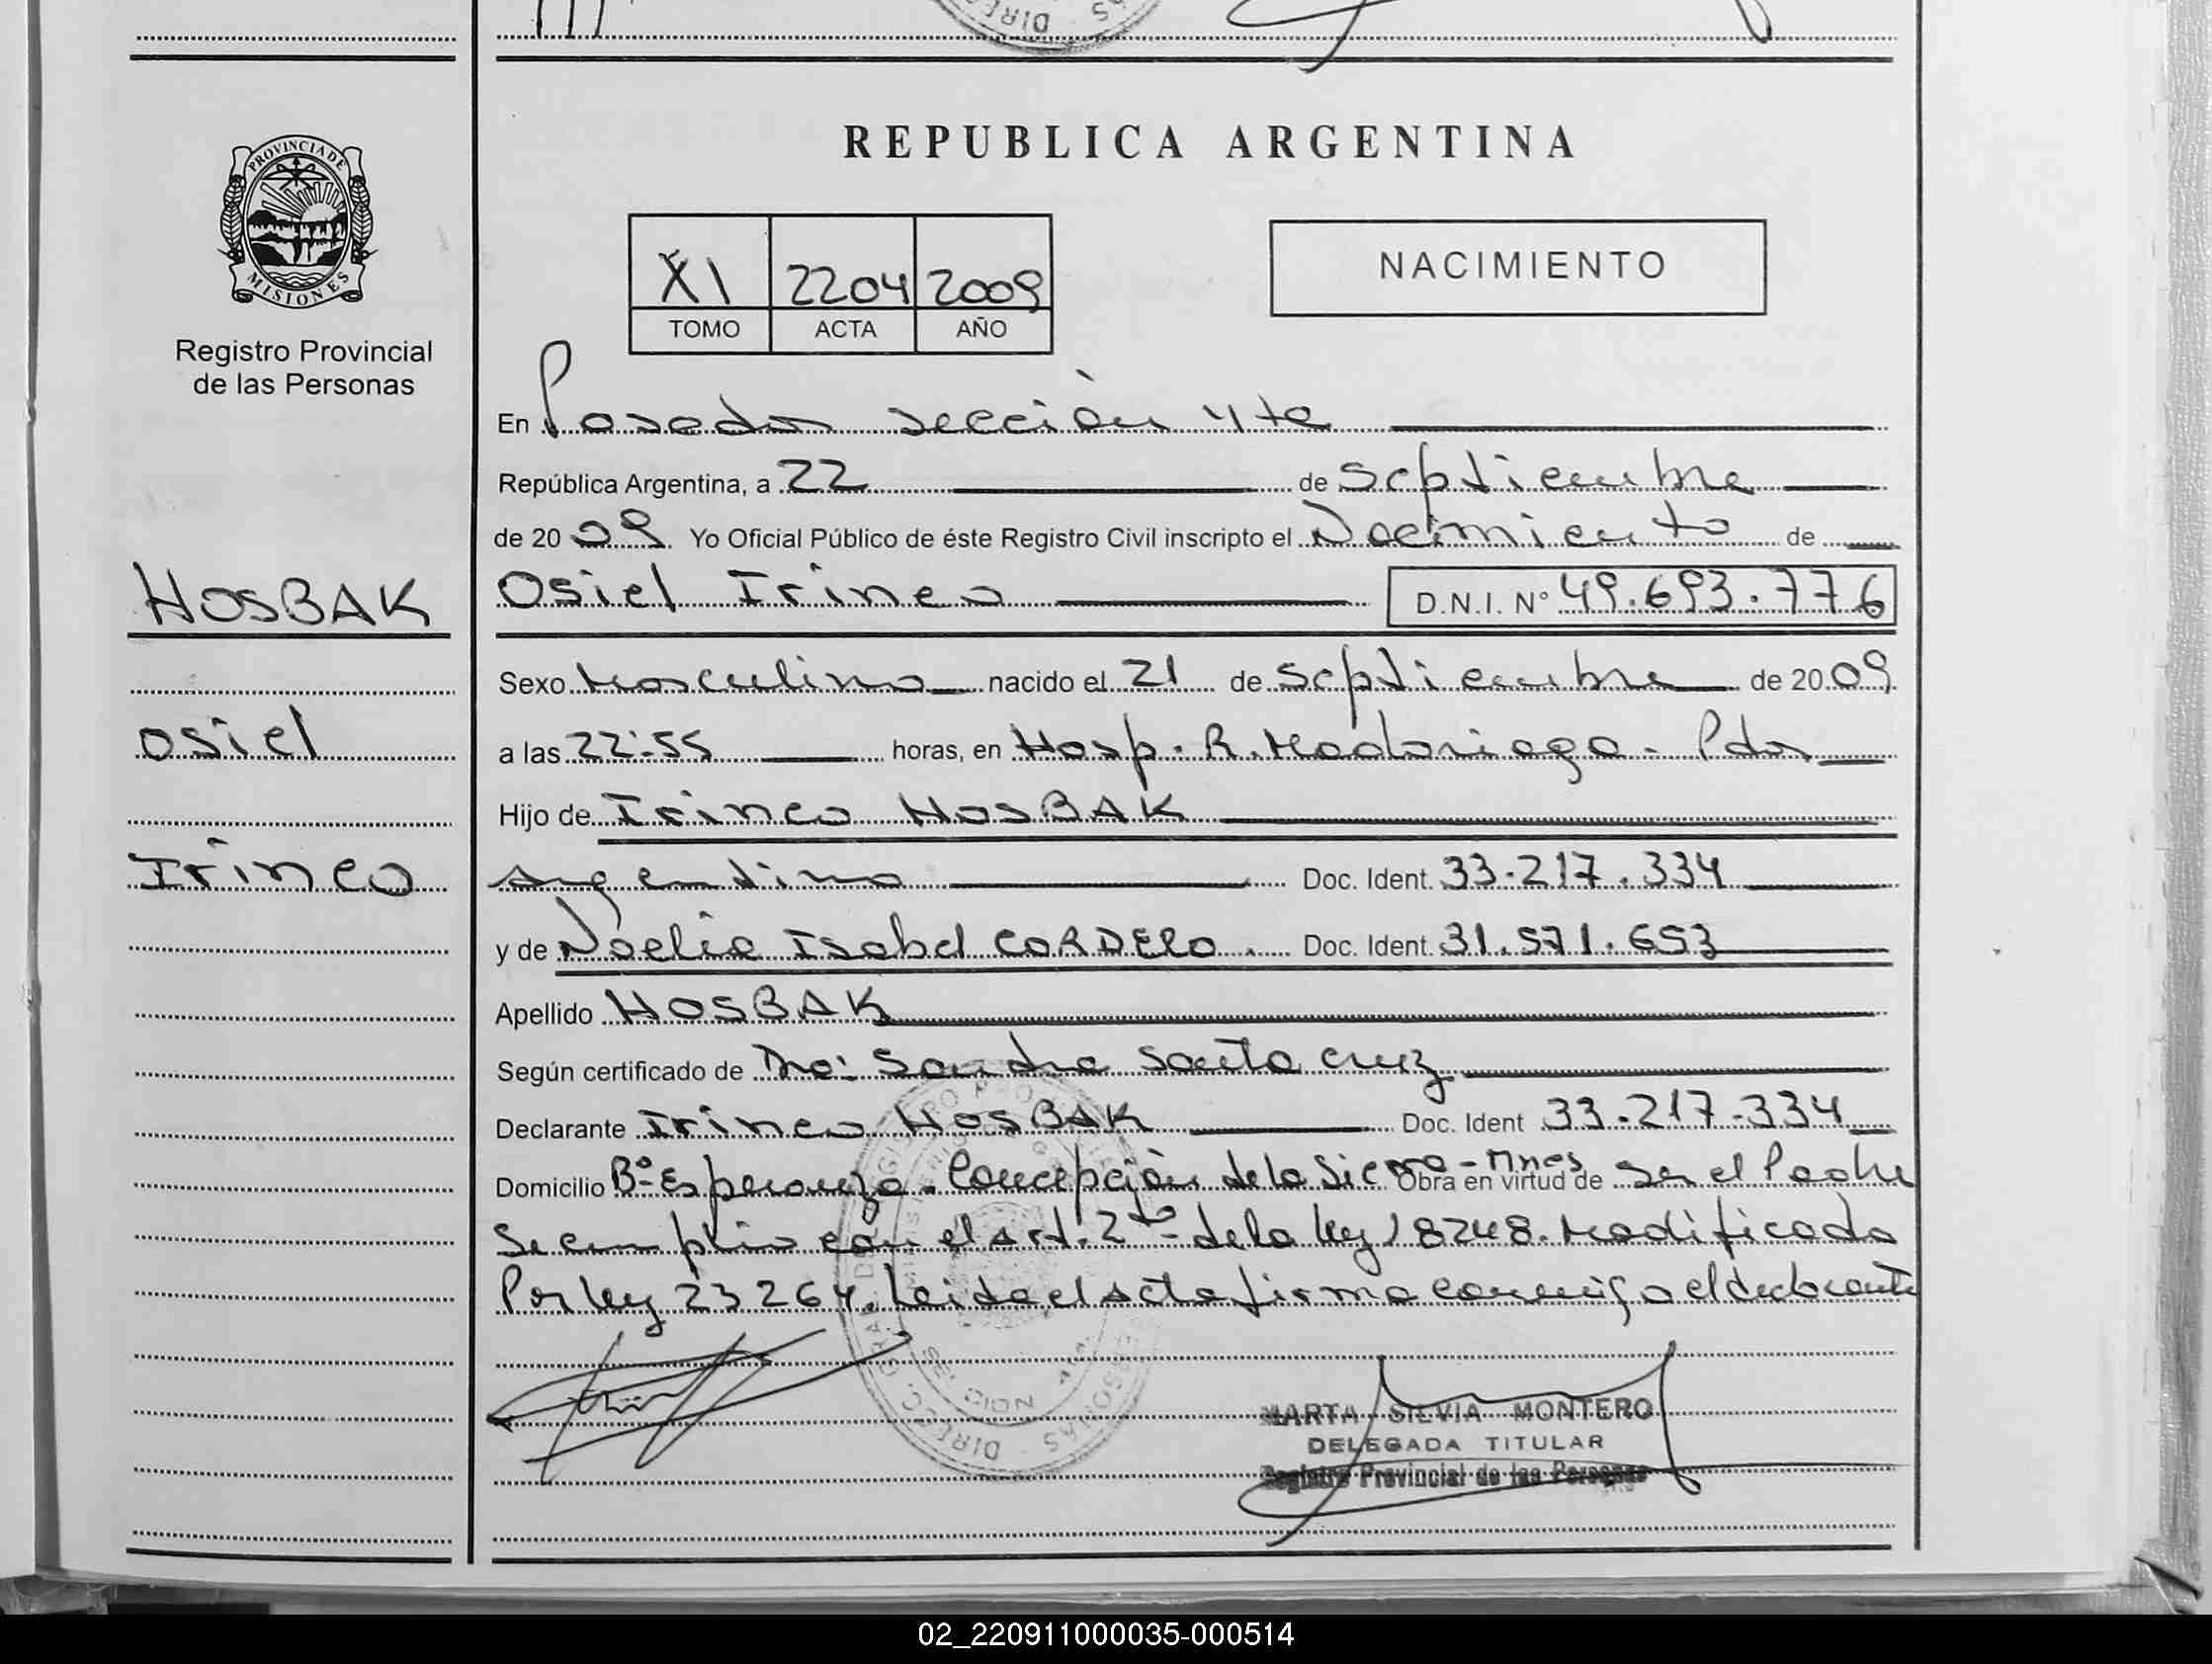 REPUBLICA ARGENTINA
PROVINCIA DE
MISIONES
Registro Provincial
de las Personas
XI 2204 2009
TOMO ACTA AÑO
NACIMIENTO
En Posadas sección 4ta
República Argentina, a 22 de Septiembre
de 2009 Yo Oficial Público de éste Registro Civil inscripto el Nacimiento de
HOSBAK
Osiel Irineo D.N.I. N° 49.693.776
Sexo Masculino nacido el 21 de Septiembre de 2009
Osiel
a las 22:55 horas, en Hosp. R. Madariaga - Pdas
Hijo de Irineo HOSBAK
Irineo
Argentino Doc. Ident. 33.217.334
y de Noelia Isabel CORDERO. Doc. Ident. 31.571.653
Apellido HOSBAK
Según certificado de Dra: Sandra Santa Cruz
Declarante Irineo HOSBAK Doc. Ident 33.217.334
Domicilio B° Esperanza - Concepción de la Sierra - Mnes Obra en virtud de Ser el Padre
Se cumplió con el art. 2do - de la ley 18248. Modificada
Por ley 23264. Leida el Acta firma conmigo el declarante
MARTA SILVIA MONTERO
DELEGADA TITULAR
Registro Provincial de las Personas
02_220911000035-000514